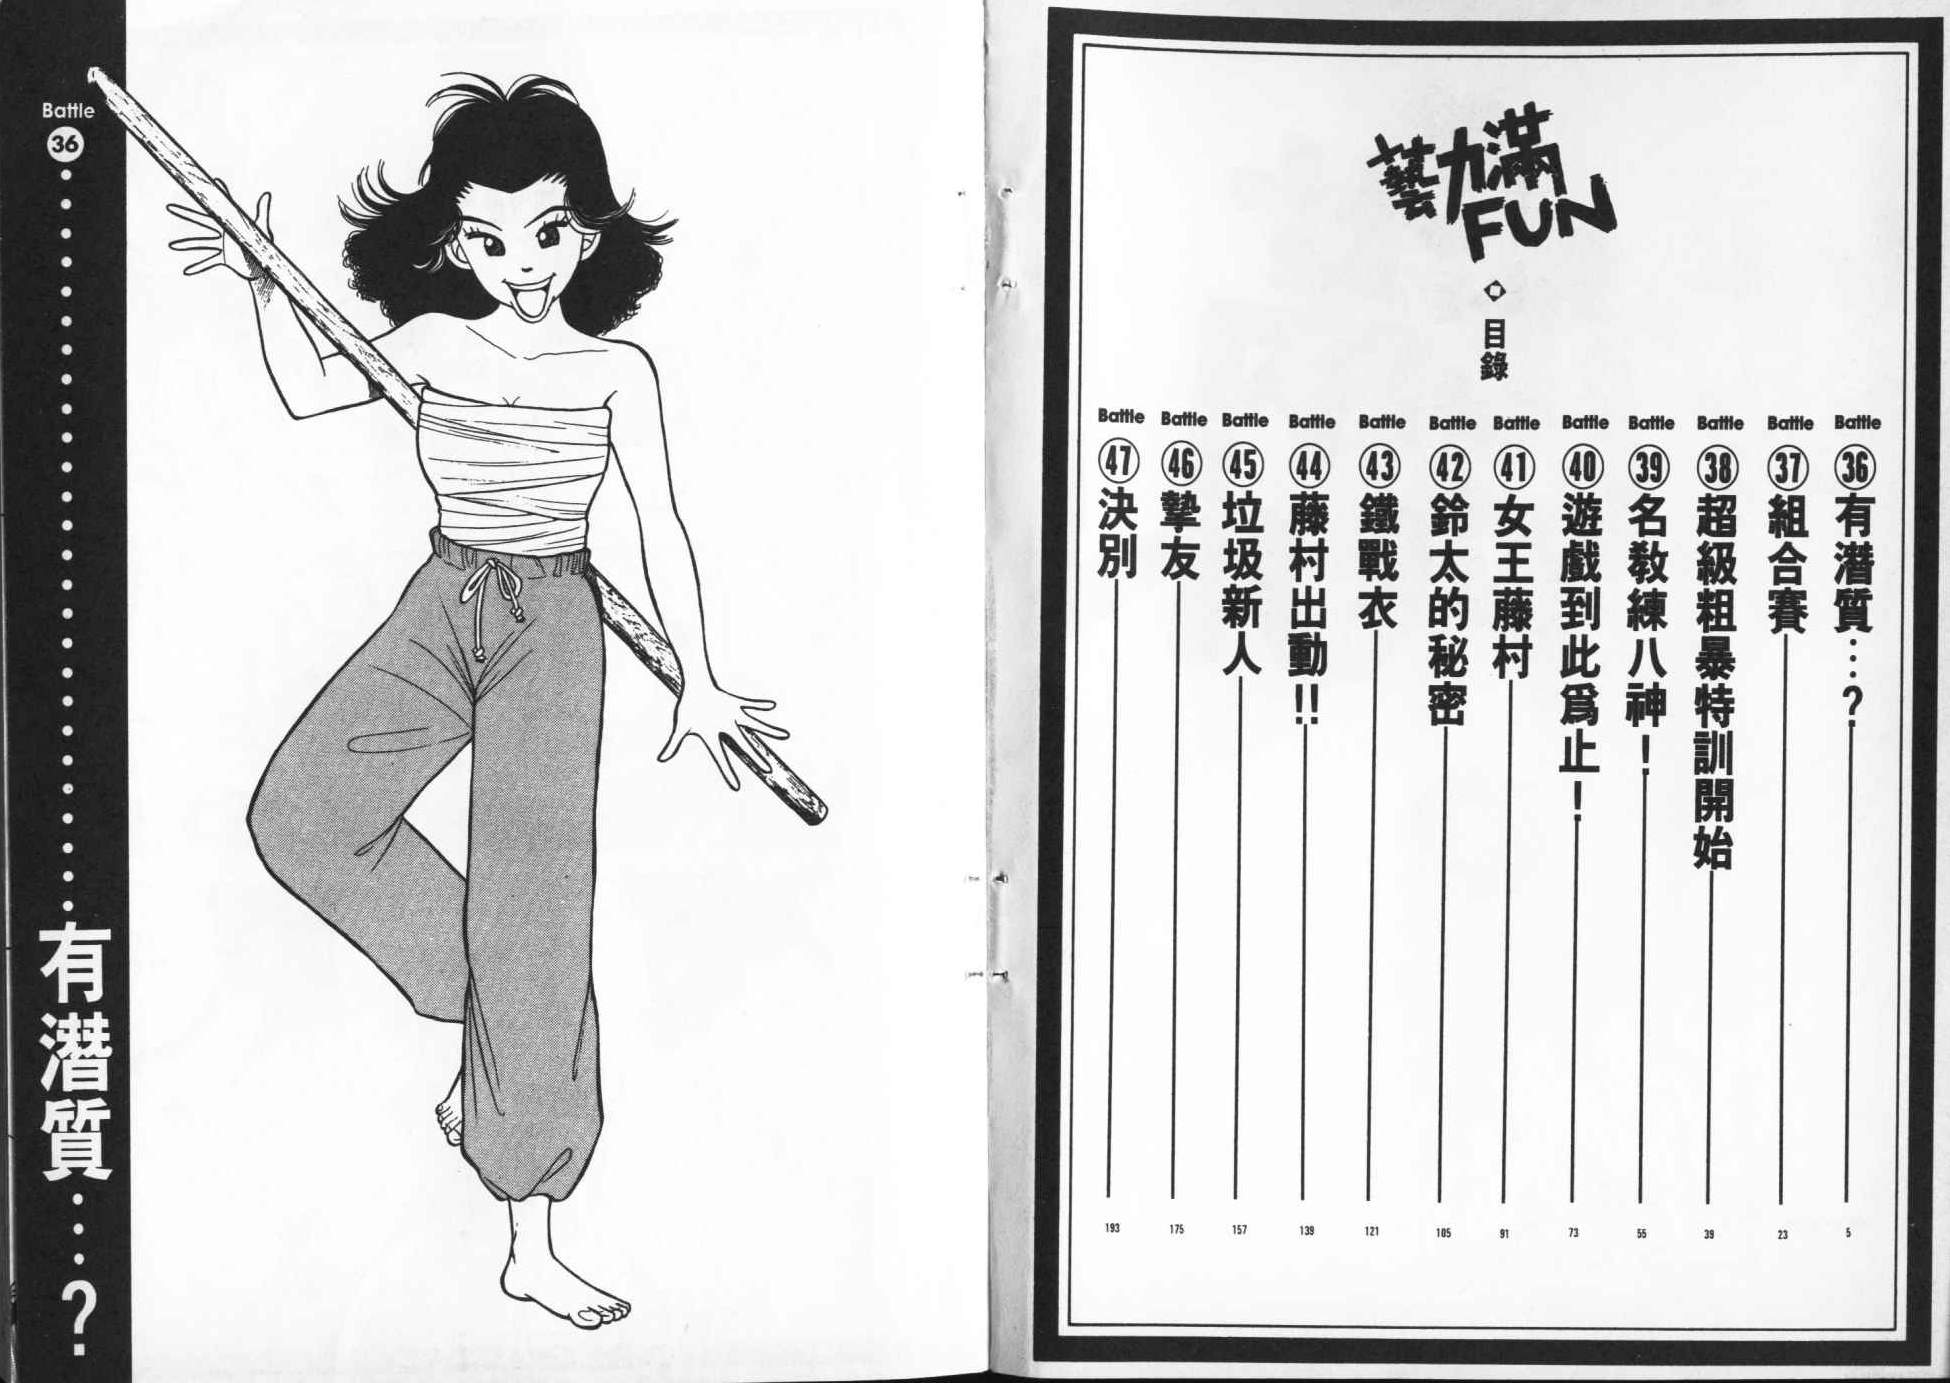 藝力滿
FUN
目錄
Battle
36
有潛質…?
5
Battle
37
組合賽
23
Battle
38
超級粗暴特訓開始
39
Battle
39
名教練八神!
55
Battle
40
遊戲到此爲止!
73
Battle
41
女王藤村
91
Battle
42
鈴太的秘密
105
Battle
43
鐵戰衣
121
Battle
44
藤村出動!!
139
Battle
45
垃圾新人
157
Battle
46
摯友
175
Battle
47
決別
193
Battle
36
有潛質…?